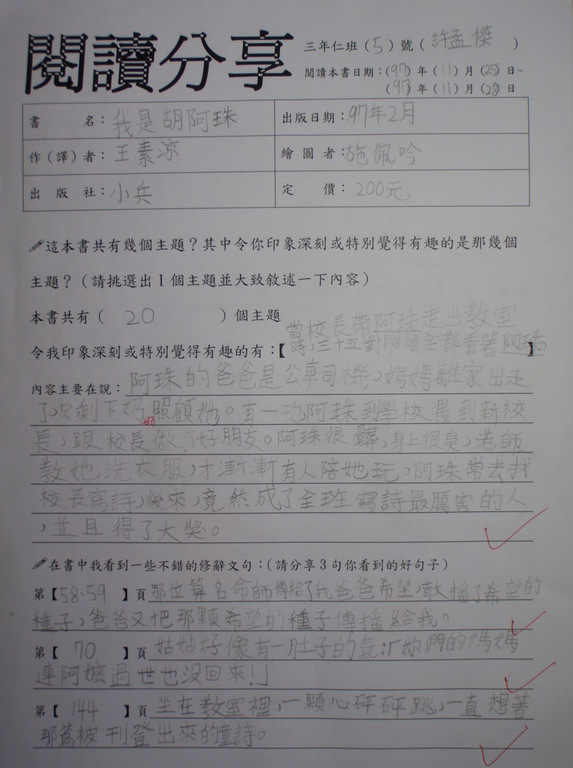 閱讀分享
三年仁班(5)號(許孟傑)
閱讀本書日期:(97)年(11)月(25)日~
(97)年(11)月(28)日
書名:我是胡阿珠
出版日期:97年2月
作(譯)者:王素涼
繪圖者:施佩吟
出版社:小兵
定價:200元
這本書共有幾個主題?其中令你印象深刻或特別覺得有趣的是那幾個
主題?(請挑選出1個主題並大致敘述一下內容)
本書共有(20)個主題
當校長帶阿珠走出教室
令我印象深刻或特別覺得有趣的有:【時,三十五對眼睛全都看著阿珠】
內容主要在說:阿珠的爸爸是公車司機,媽媽離家出走
了,只剩下奶奶照顧她。有一次阿珠到學校遇到新校
長,跟校長做了好朋友。阿珠很髒,身上很臭,老師
教她洗衣服,才漸漸有人陪她玩。阿珠常去找
校長寫詩,後來,竟然成了全班寫詩最厲害的人
,並且得了大獎。
在書中我看到一些不錯的修辭文句:(請分享3句你看到的好句子)
第【58-59】頁那位算名命師傅給了爸爸希望,散播了希望的
種子,爸爸又把那顆希望的種子傳播給我。
第【70】頁姑姑好像有一肚子的氣:「妳們的媽媽
連阿嬤過世也沒回來!」
第【144】頁坐在教室裡,一顆心砰砰跳,一直想著
那篇被刊登出來的童詩。